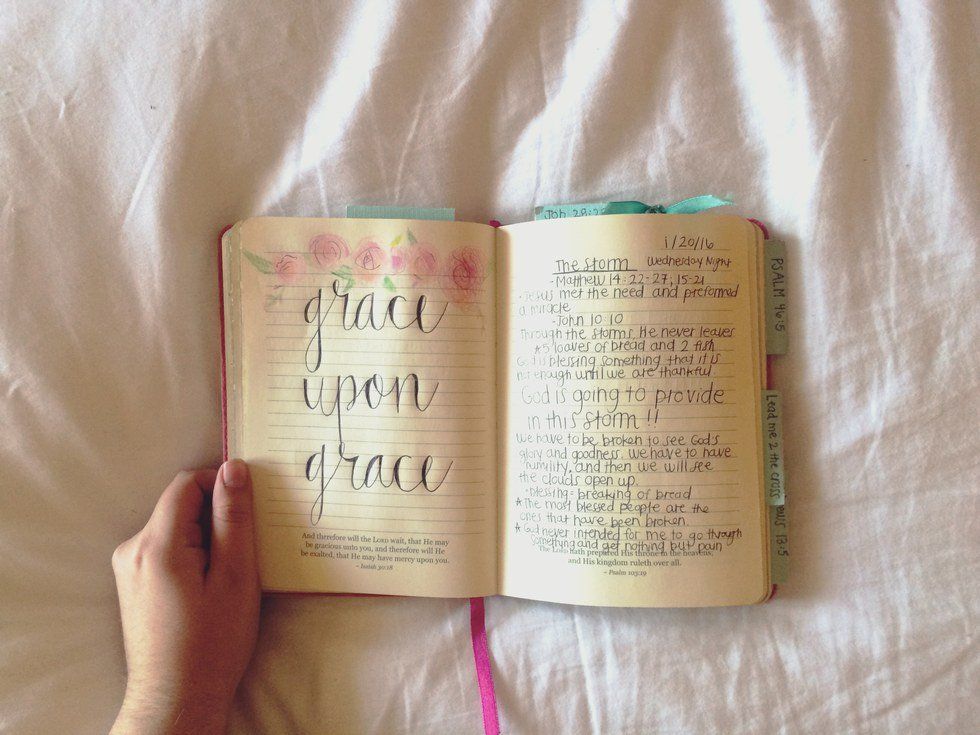 grace
upon
grace
And therefore will the LORD wait, that He may
be gracious unto you, and therefore will He
be exalted, that He may have mercy upon you.
~ Isaiah 30:18
Joh
1/20/16
The Storm Wednesday Night
- Matthew 14:22-27; 15-21
- Jesus met the need and preformed
a miracle
- John 10:10
Through the storms, He never leaves
*5 loaves of bread and 2 fish
God is blessing something that it is
not enough until we are thankful.
God is going to provide
in this storm!!
We have to be broken to see God's
glory and goodness. We have to have
humility, and then we will see
the clouds open up.
- blessing = breaking of bread
*The most blessed people are the
ones that have been broken.
*God never intended for me to go through
something and get nothing but pain
The LORD hath prepared His throne in the heavens;
and His kingdom ruleth over all.
~ Psalm 103:19
PSALM 46:5
Lead me 2 the cross
13:5